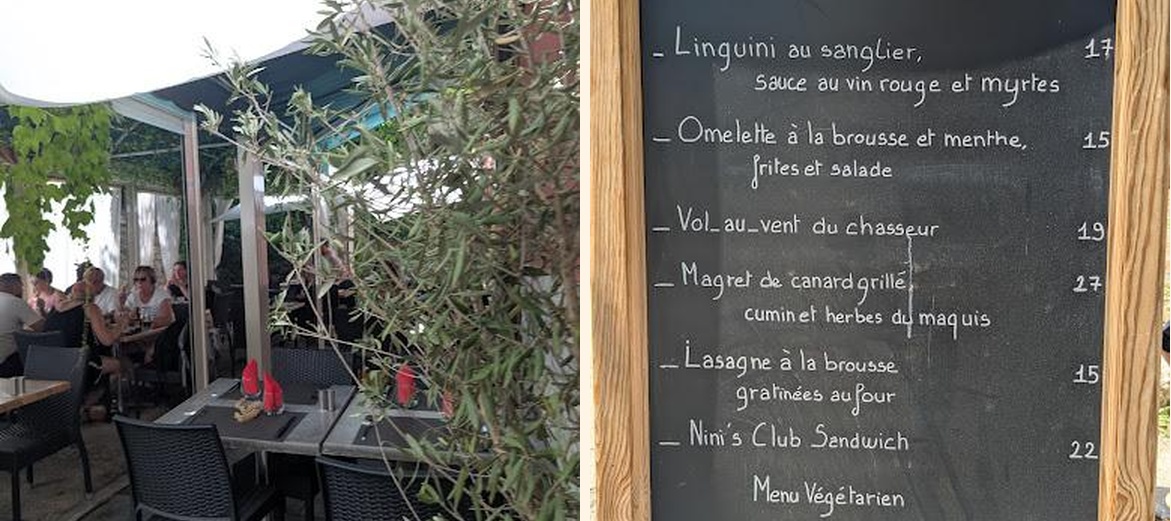 _ Linguini au sanglier, 17
sauce au vin rouge et myrtes
_ Omelette à la brousse et menthe, 15
frites et salade
_ Vol_au_vent du chasseur 19
_ Magret de canard grillé 27
cumin et herbes du maquis
_ Lasagne à la brousse 15
gratinées au four
_ Nini's Club Sandwich 22
Menu Végétarien